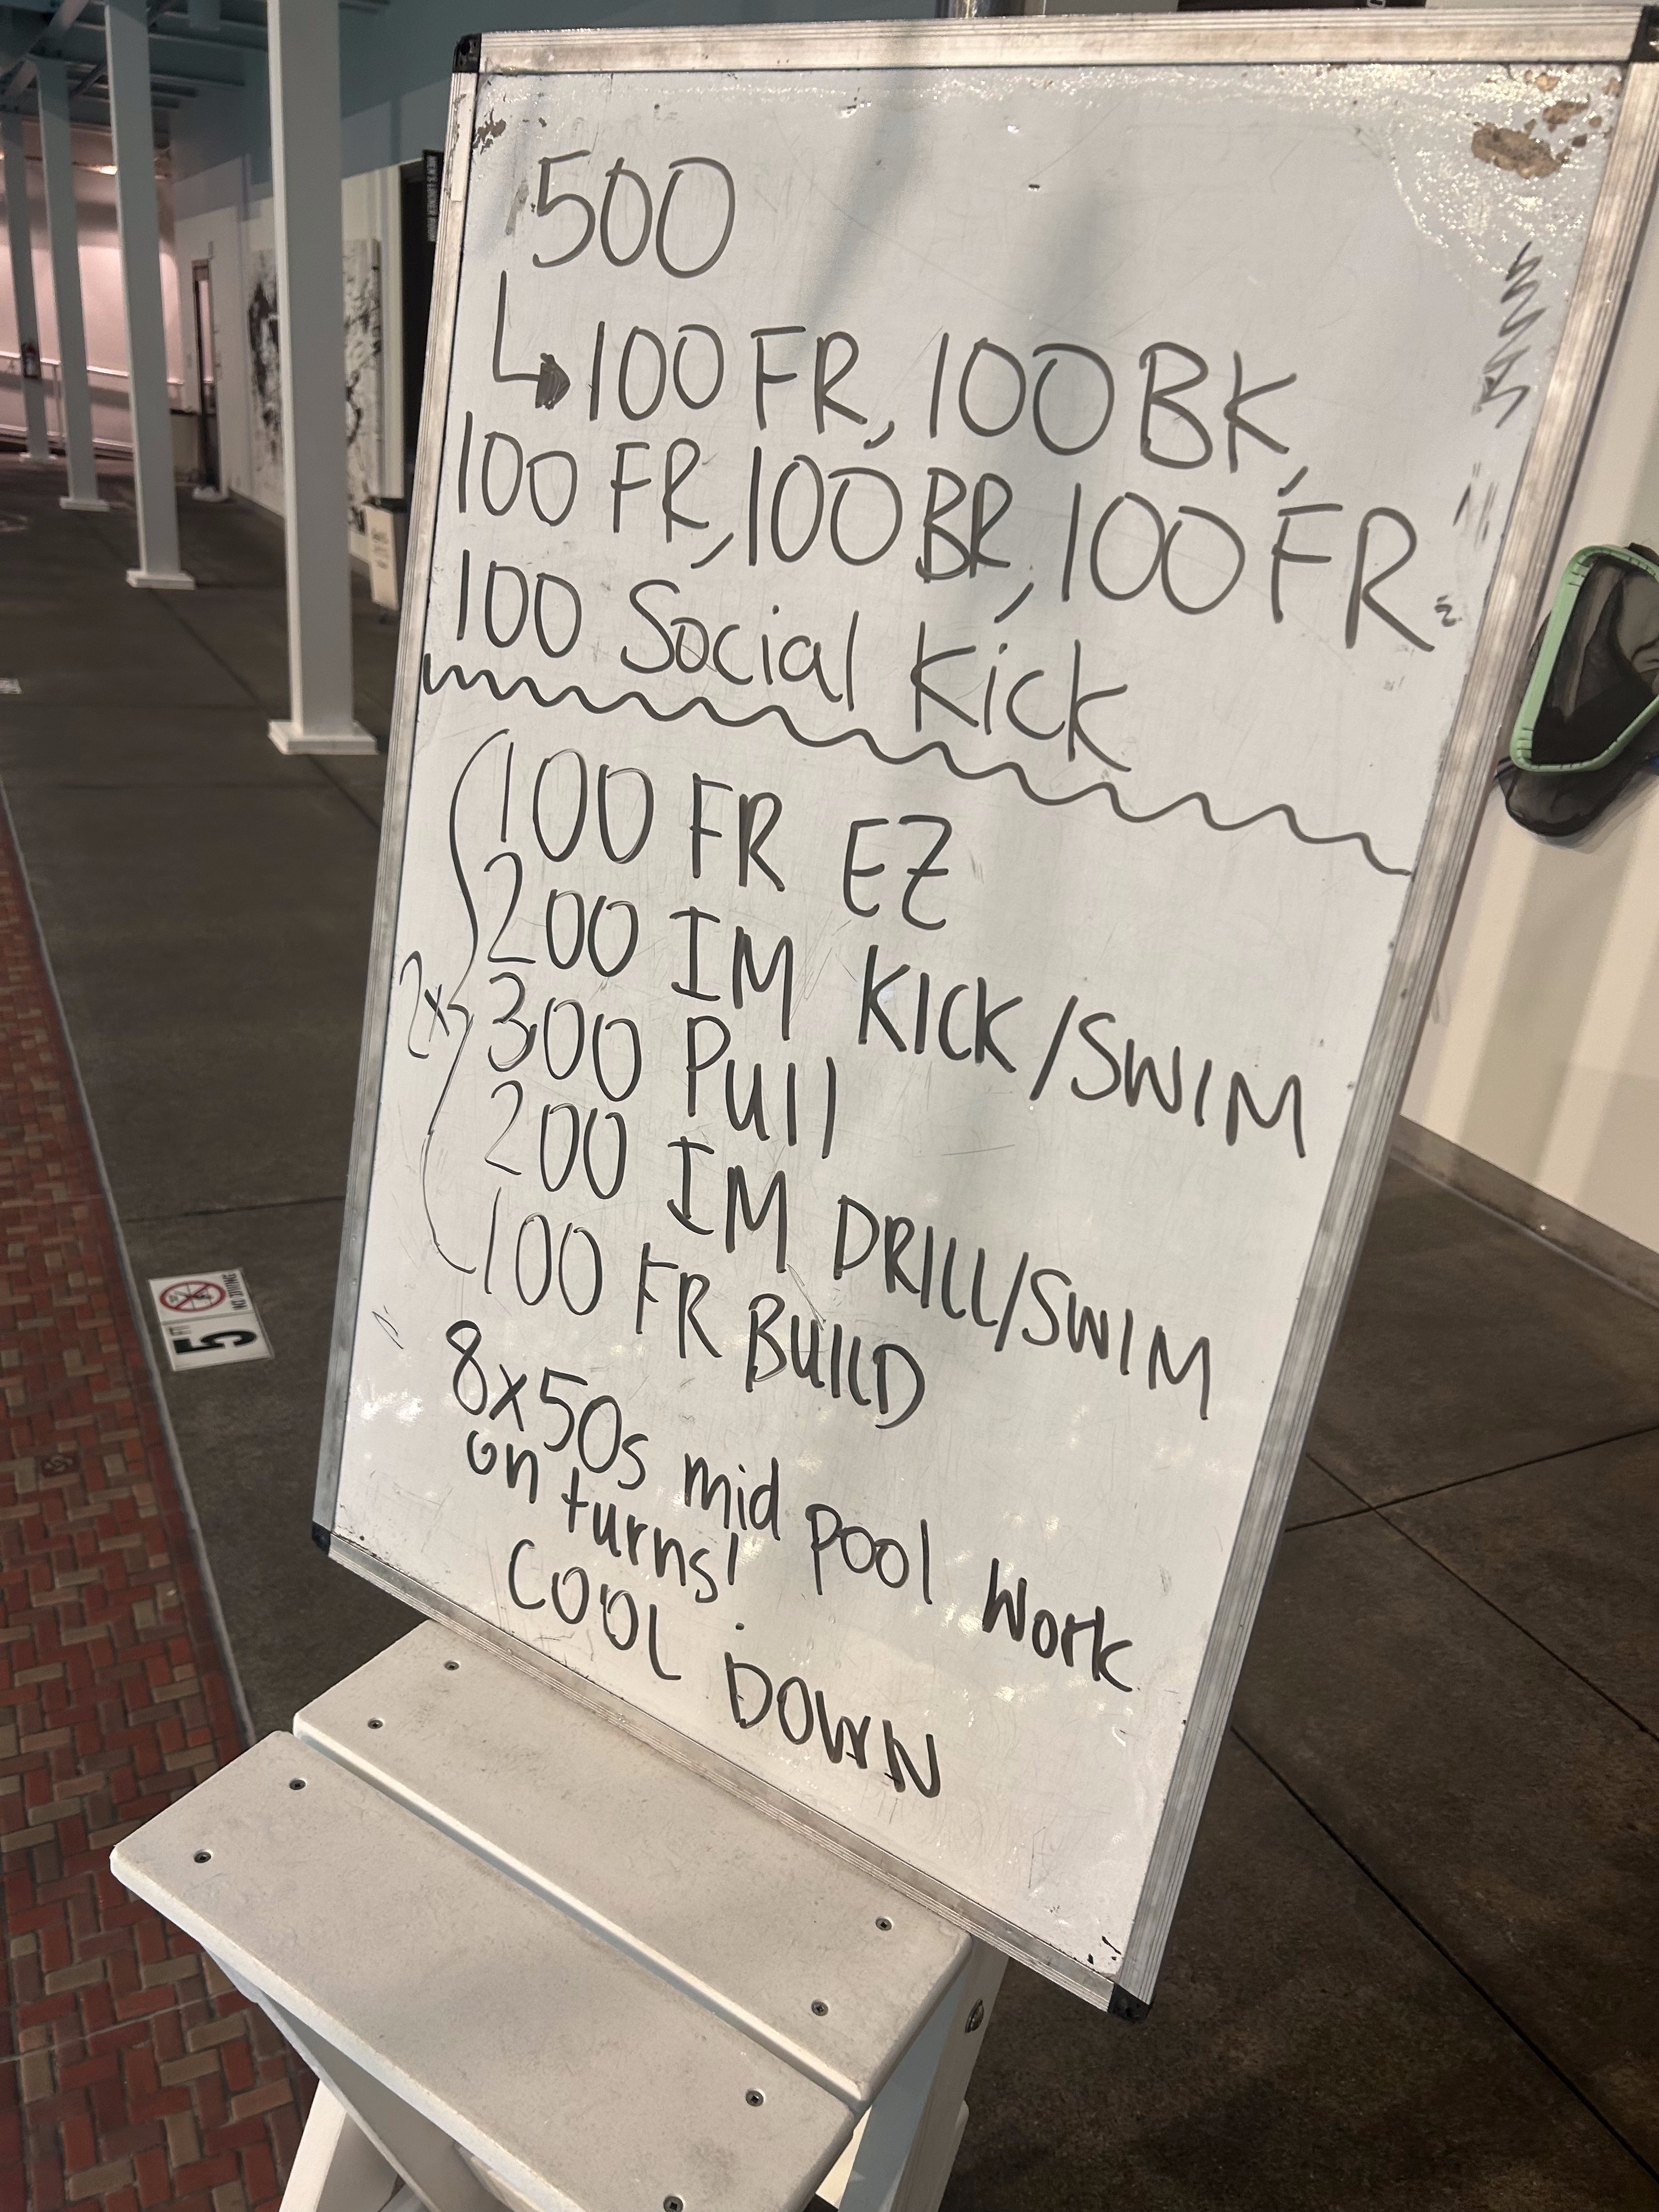 500
100 FR, 100 BK,
100 FR, 100 BR, 100 FR
100 Social Kick
100 FR EZ
200 IM KICK/SWIM
2x
300 Pull
200 IM DRILL/SWIM
100 FR BUILD
8x50s mid pool work
on turns!
COOL DOWN
MEN'S LOCKER ROOM
5 FT
NO DIVING